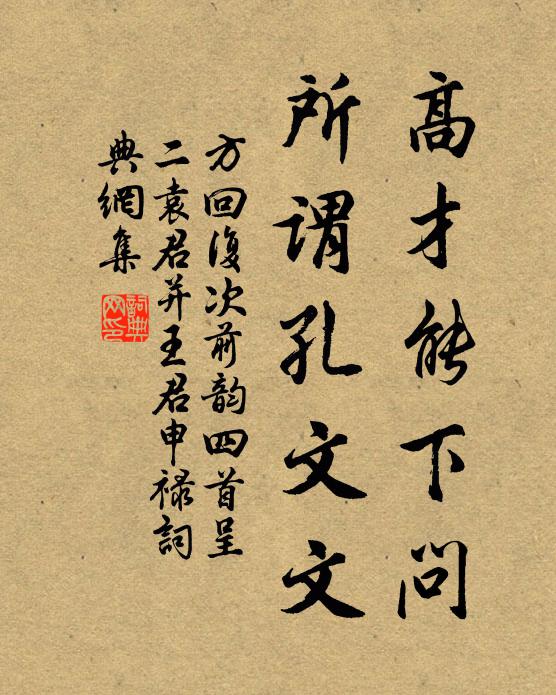 高才能下問
所謂孔文文
方回復次前韵四首呈
二袁君并王君申禄詞
典網集
詞典网印